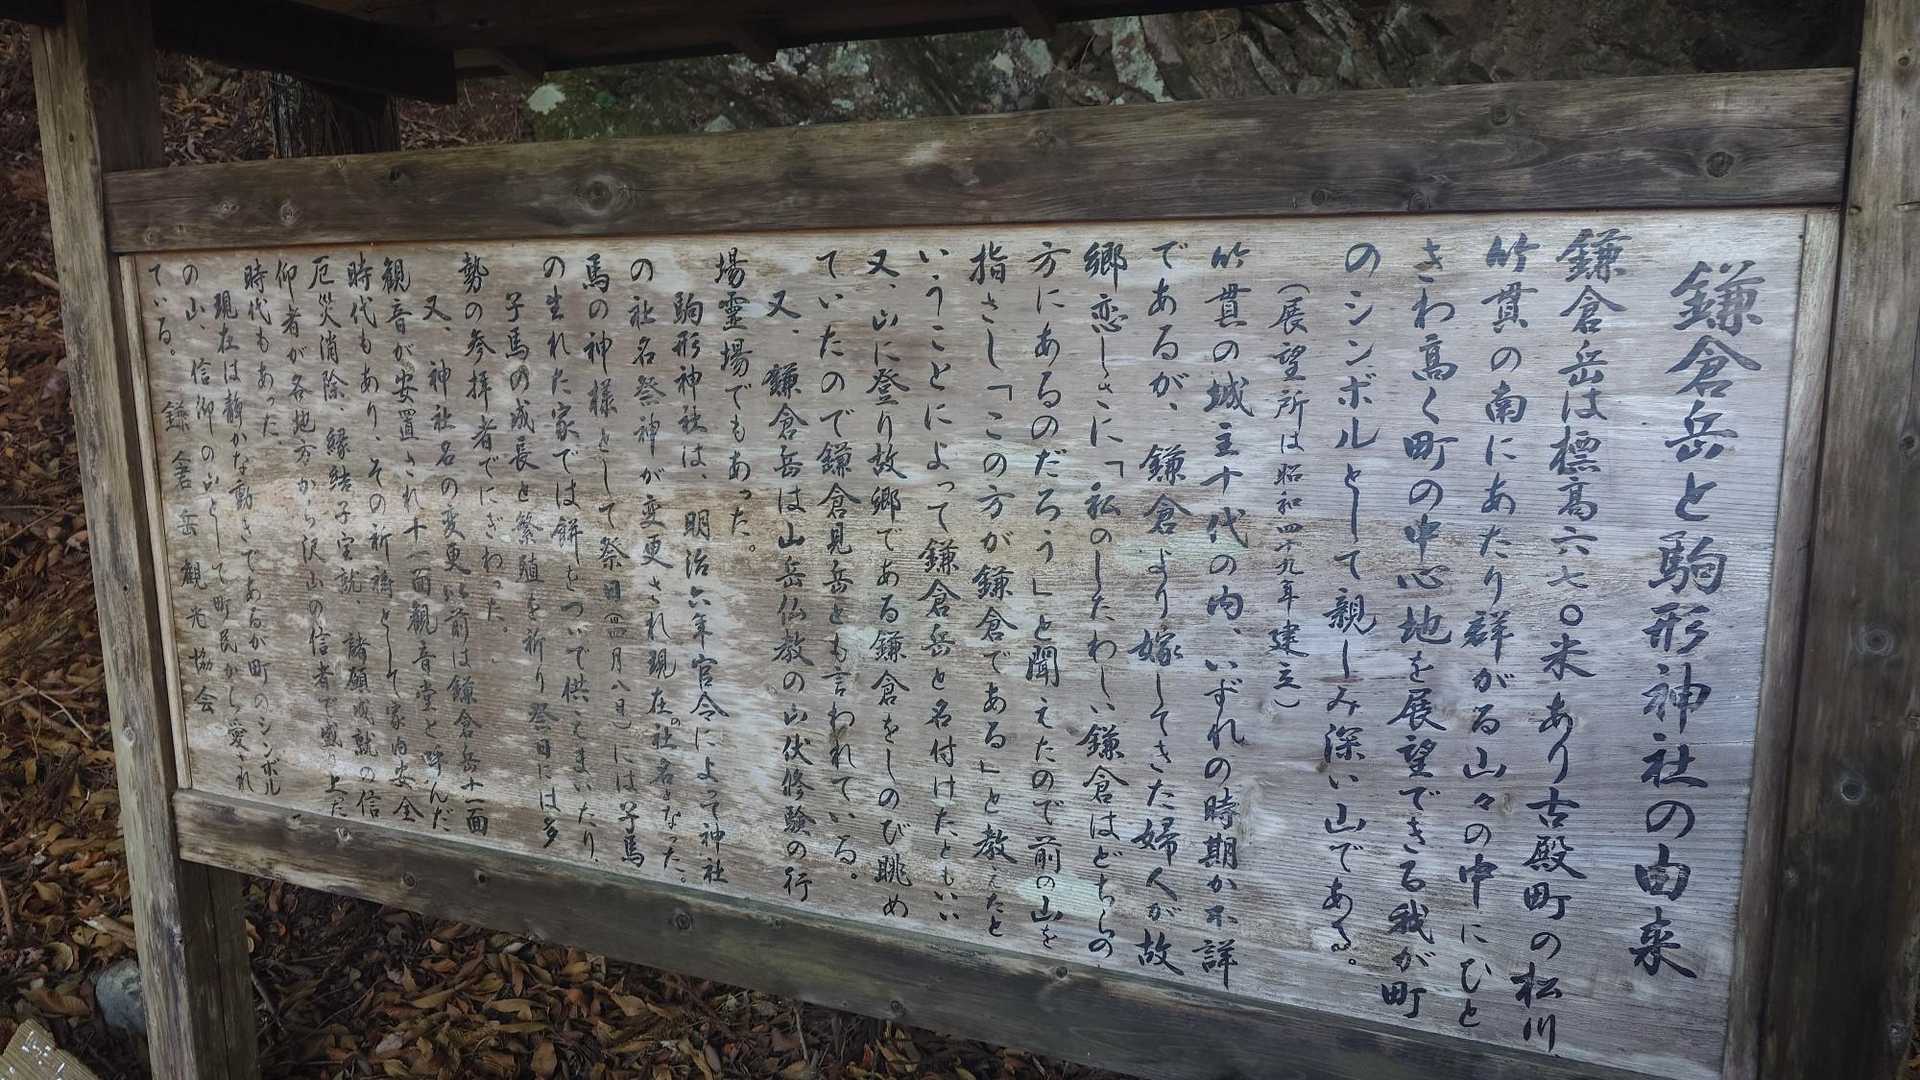 鎌倉岳と駒形神社の由来
鎌倉岳は標高六七〇米あり古殿町の松川、
竹貫の南にあたり群がる山々の中にひと
きわ高く町の中心地を展望できる我が町
のシンボルとして親しみ深い山である。
（展望所は昭和四十九年建立）
竹貫の城主十代の内、いずれの時期か不詳
であるが、鎌倉より嫁してきた婦人が故
郷恋しさに「私のしたわしい鎌倉はどちらの
方にあるのだろう」と聞えたので前の山を
指さし「この方が鎌倉である」と教えたと
いうことによって鎌倉岳と名付けたともいい
又、山に登り故郷である鎌倉をしのび眺め
ていたので鎌倉見岳とも言われている。
又、鎌倉岳は山岳仏教の山伏修験の行
場霊場でもあった。
駒形神社は、明治六年官令によって神社
の社名祭神が変更され現在の社名となった。
馬の神様として祭日（四月八日）には子馬
の生れた家では餅をついで供えまいたり、
子馬の成長と繁殖を祈り祭日には多
勢の参拝者でにぎわった。
又、神社名の変更以前は鎌倉岳十一面
観音が安置され十一面観音堂と呼んだ
時代もあり、その祈祷として家内安全
厄災消除、縁結子宝就、諸願成就の信
仰者が各地方から沢山の信者で盛上だ
時代もあった
現在は静かな動きであるが町のシンボル
の山、信仰の山として町民から愛され
ている。 鎌倉岳観光協会